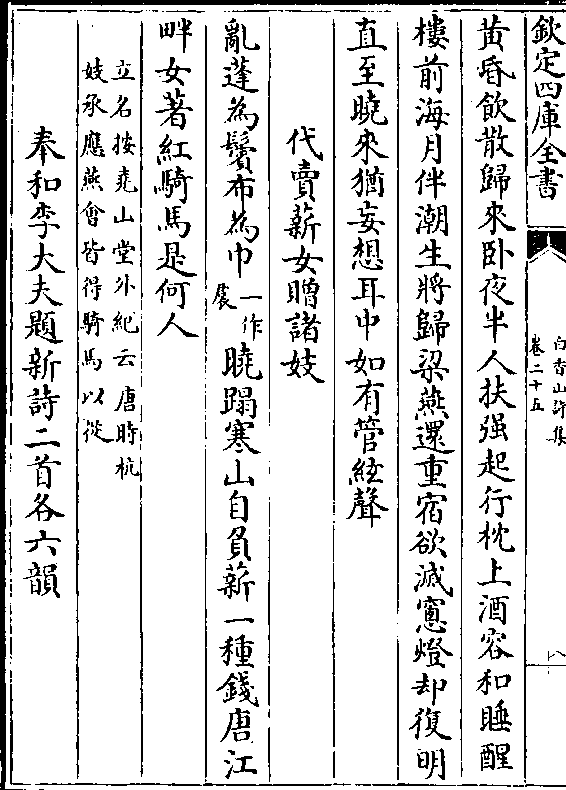 欽定四庫全書
白香山詩集
卷二十五
八
黄昏飲散歸來卧夜半人扶强起行枕上酒容和睡醒
樓前海月伴潮生將歸梁燕還重宿欲滅窻燈却復明
直至曉來猶妄想耳中如有管絃聲
代賣薪女贈諸妓
亂蓬為鬢布為巾一作㡓曉蹋寒山自負薪一種錢唐江
畔女著紅騎馬是何人
立名按堯山堂外紀云唐時杭
妓承應燕會皆得騎馬以從
奉和李大夫題新詩二首各六韻